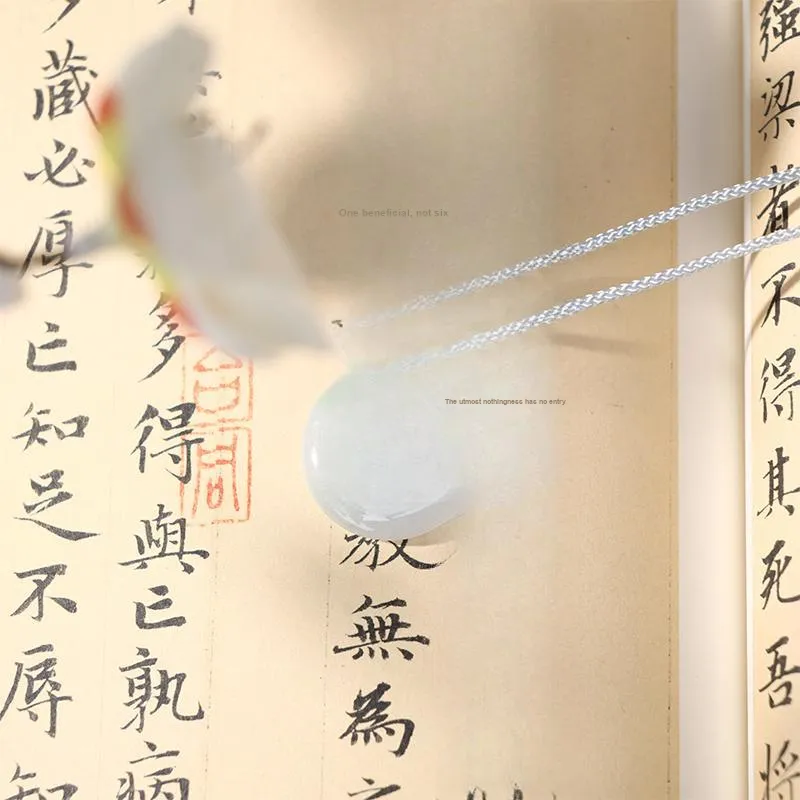 強梁者不得其死吾將
One beneficial, not six
The utmost nothingness has no entry
無為之
多得與亡孰病
藏必厚亡知足不辱知